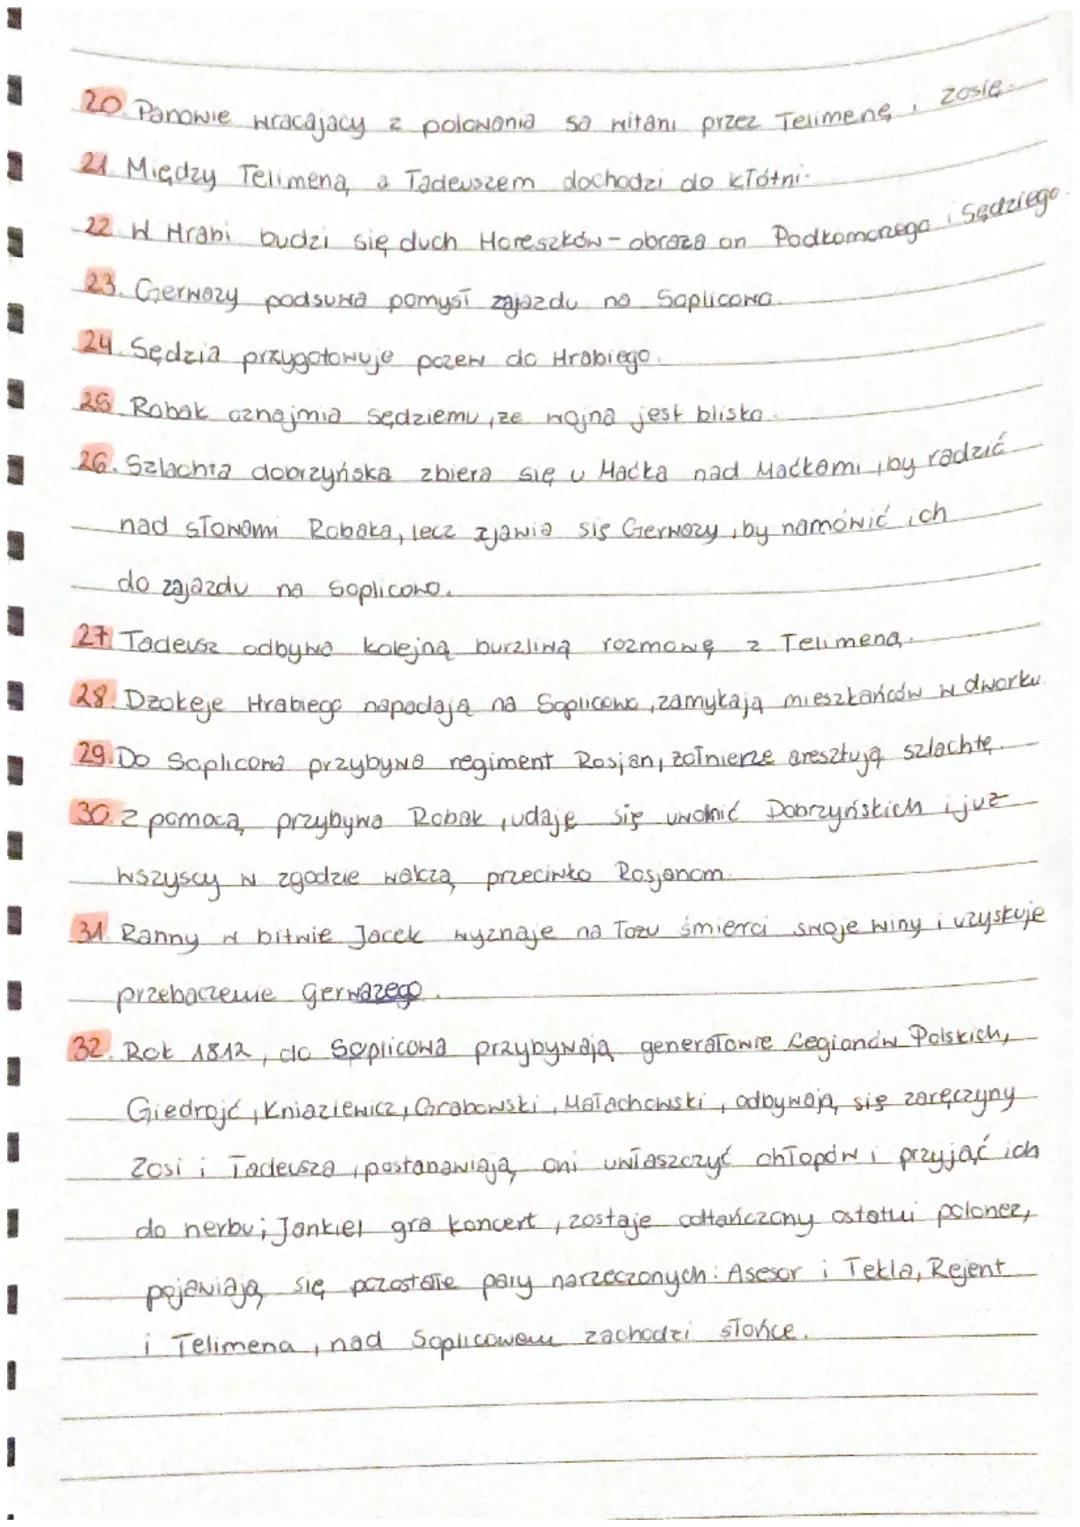 20. Panowie wracający z polowania są witani przez Telimenę i Zosię.
21. Między Telimeną a Tadeuszem dochodzi do kłótni.
22. W Hrabi budzi się duch Horeszków - obraza on Podkomorzego i Sędziego.
23. Gerwazy podsuwa pomysł zajazdu na Soplicowo.
24. Sędzia przygotowuje pozew do Hrabiego.
25. Robak oznajmia sędziemu, że wojna jest blisko.
26. Szlachta dobrzyńska zbiera się u Maćka nad Maćkami, by radzić
nad słowami Robaka, lecz zjawia się Gerwazy, by namówić ich
do zajazdu na Soplicowo.
27. Tadeusz odbywa kolejną burzliwą rozmowę z Telimeną.
28. Dżokeje Hrabiego napadają na Soplicowo, zamykają mieszkańców w dworku.
29. Do Soplicowa przybywa regiment Rosjan, żołnierze aresztują szlachtę.
30. Z pomocą przybywa Robak, udaje się uwolnić Dobrzyńskich i już
wszyscy w zgodzie walczą przeciwko Rosjanom.
31. Ranny w bitwie Jacek wyznaje na łożu śmierci swoje winy i uzyskuje
przebaczenie Gerwazego.
32. Rok 1812, do Soplicowa przybywają generałowie Legionów Polskich,
Giedrojć, Kniaziewicz, Grabowski, Małachowski, odbywają się zaręczyny
Zosi i Tadeusza, postanawiają oni uwłaszczyć chłopów i przyjąć ich
do herbu; Jankiel gra koncert, zostaje odtańczony ostatni polonez,
pojawiają się pozostałe pary narzeczonych: Asesor i Tekla, Rejent
i Telimena, nad Soplicowem zachodzi słońce.